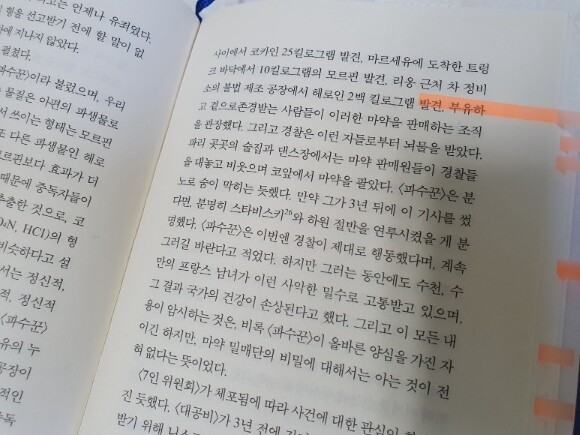 고는 언제나 유죄였다.
형을 선고받기 전에 할 말이 없
에 지나지 않았다.
펼쳤다.
파수꾼〉이라 불렀으며, 우리
물질은 아편의 파생물로
서 쓰이는 형태는 모르핀
또 다른 파생물인 헤로
르핀보다 효과가 더
때문에 중독자들이
추출한 것으로, 코
O₄N, HCl)의 형
비슷하다고 설
서는 정신적,
적, 정신적
〈파수꾼〉
유의 누
공장이
적인
수독
사이에서 코카인 25킬로그램 발견, 마르세유에 도착한 트렁
크 바닥에서 10킬로그램의 모르핀 발견, 리옹 근처 차 정비
소의 불법 제조 공장에서 헤로인 2백 킬로그램 발견. 부유하
고 겉으로존경받는 사람들이 이러한 마약을 판매하는 조직
을 관장했다. 그리고 경찰은 이런 자들로부터 뇌물을 받았다.
파리 곳곳의 술집과 댄스장에서는 마약 판매원들이 경찰들
을 대놓고 비웃으며 코앞에서 마약을 팔았다. 〈파수꾼〉은 분
노로 숨이 막히는 듯했다. 만약 그가 3년 뒤에 이 기사를 썼
다면, 분명히 스타비스키26와 하원 절반을 연루시켰을 게 분
명했다. 〈파수꾼〉은 이번엔 경찰이 제대로 행동했다며, 계속
그러길 바란다고 적었다. 하지만 그러는 동안에도 수천, 수
만의 프랑스 남녀가 이런 사악한 밀수로 고통받고 있으며,
그 결과 국가의 건강이 손상된다고 했다. 그리고 이 모든 내
용이 암시하는 것은, 비록 〈파수꾼〉이 올바른 양심을 가진 자
이긴 하지만, 마약 밀매단의 비밀에 대해서는 아는 것이 전
혀 없다는 뜻이었다.
〈7인 위원회〉가 체포됨에 따라 사건에 대한 관심이
진 듯했다. 〈대공비〉가 3년 전에
받기 위해